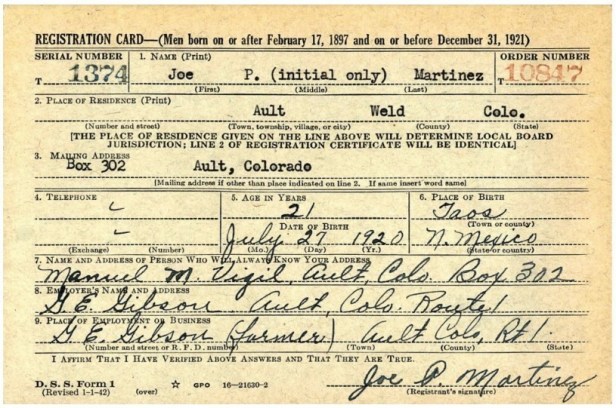 REGISTRATION CARD—(Men born on or after February 17, 1897 and on or before December 31, 1921)
SERIAL NUMBER 1. NAME (Print) ORDER NUMBER
T 1374 Joe P. (initial only) Martinez T 10847
(First) (Middle) (Last)
2. PLACE OF RESIDENCE (Print)
Ault Weld Colo.
(Number and street) (Town, township, village, or city) (County) (State)
[THE PLACE OF RESIDENCE GIVEN ON THE LINE ABOVE WILL DETERMINE LOCAL BOARD
JURISDICTION; LINE 2 OF REGISTRATION CERTIFICATE WILL BE IDENTICAL]
3. MAILING ADDRESS
Box 302 Ault, Colorado
[Mailing address if other than place indicated on line 2. If same insert word same]
4. TELEPHONE 5. AGE IN YEARS 6. PLACE OF BIRTH
21 Taos
DATE OF BIRTH (Town or county)
July 27 1920 N. Mexico
(Exchange) (Number) (Mo.) (Day) (Yr.) (State or country)
7. NAME AND ADDRESS OF PERSON WHO WILL ALWAYS KNOW YOUR ADDRESS
Manuel M. Vigil, Ault, Colo. Box 302
8. EMPLOYER'S NAME AND ADDRESS
G. E. Gibson, Ault, Colo. Route 1
9. PLACE OF EMPLOYMENT OR BUSINESS
G. E. Gibson (farmer) Ault Colo, Rt 1.
(Number and street or R. F. D. number) (Town) (County) (State)
I AFFIRM THAT I HAVE VERIFIED ABOVE ANSWERS AND THAT THEY ARE TRUE.
Joe P. Martinez
D. S. S. Form 1 (over) ☆ GPO 16—21630-2 (Registrant's signature)
(Revised 1-1-42)